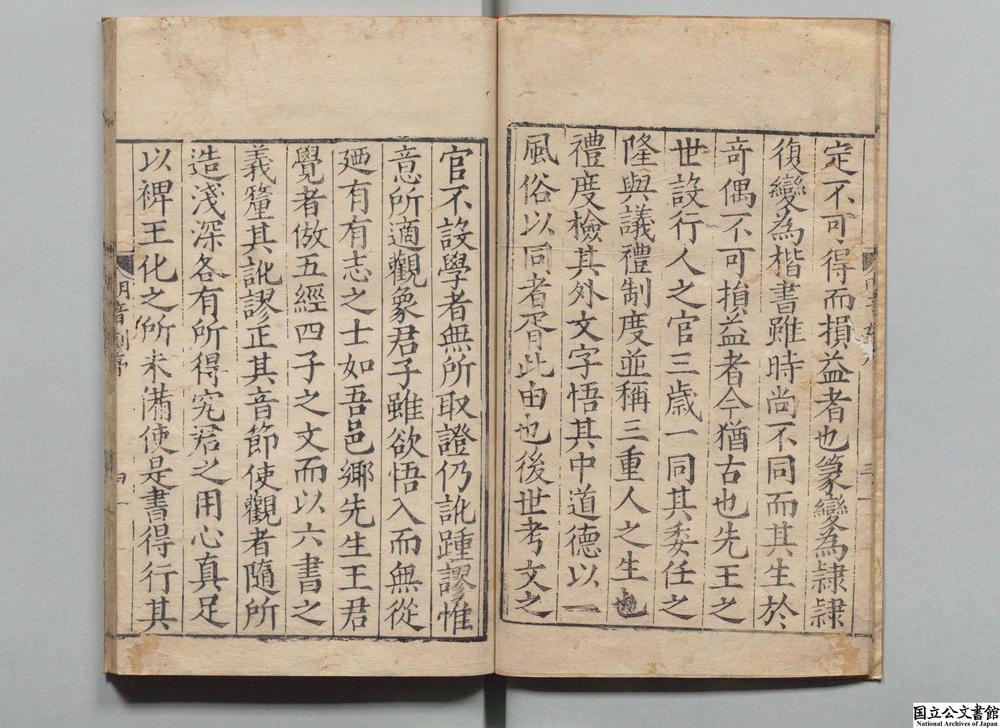 定不可得而損益者也篆變為隷隷
復變為楷書雖時尚不同而其生於
奇偶不可損益者今猶古也先王之
世設行人之官三歳一同其委任之
隆與議禮制度並稱三重人之生也
禮度檢其外文字悟其中道德以一
風俗以同者胥此由也後世考文之
官不設學者無所取證仍訛踵謬惟
意所適觀象君子雖欲悟入而無從
廼有有志之士如吾邑鄉先生王君
覺者倣五經四子之文而以六書之
義釐其訛謬正其音節使觀者隨所
造淺深各有所得究君之用心真足
以裨王化之所未備使是書得行其
三
四
国立公文書館
National Archives of Japan